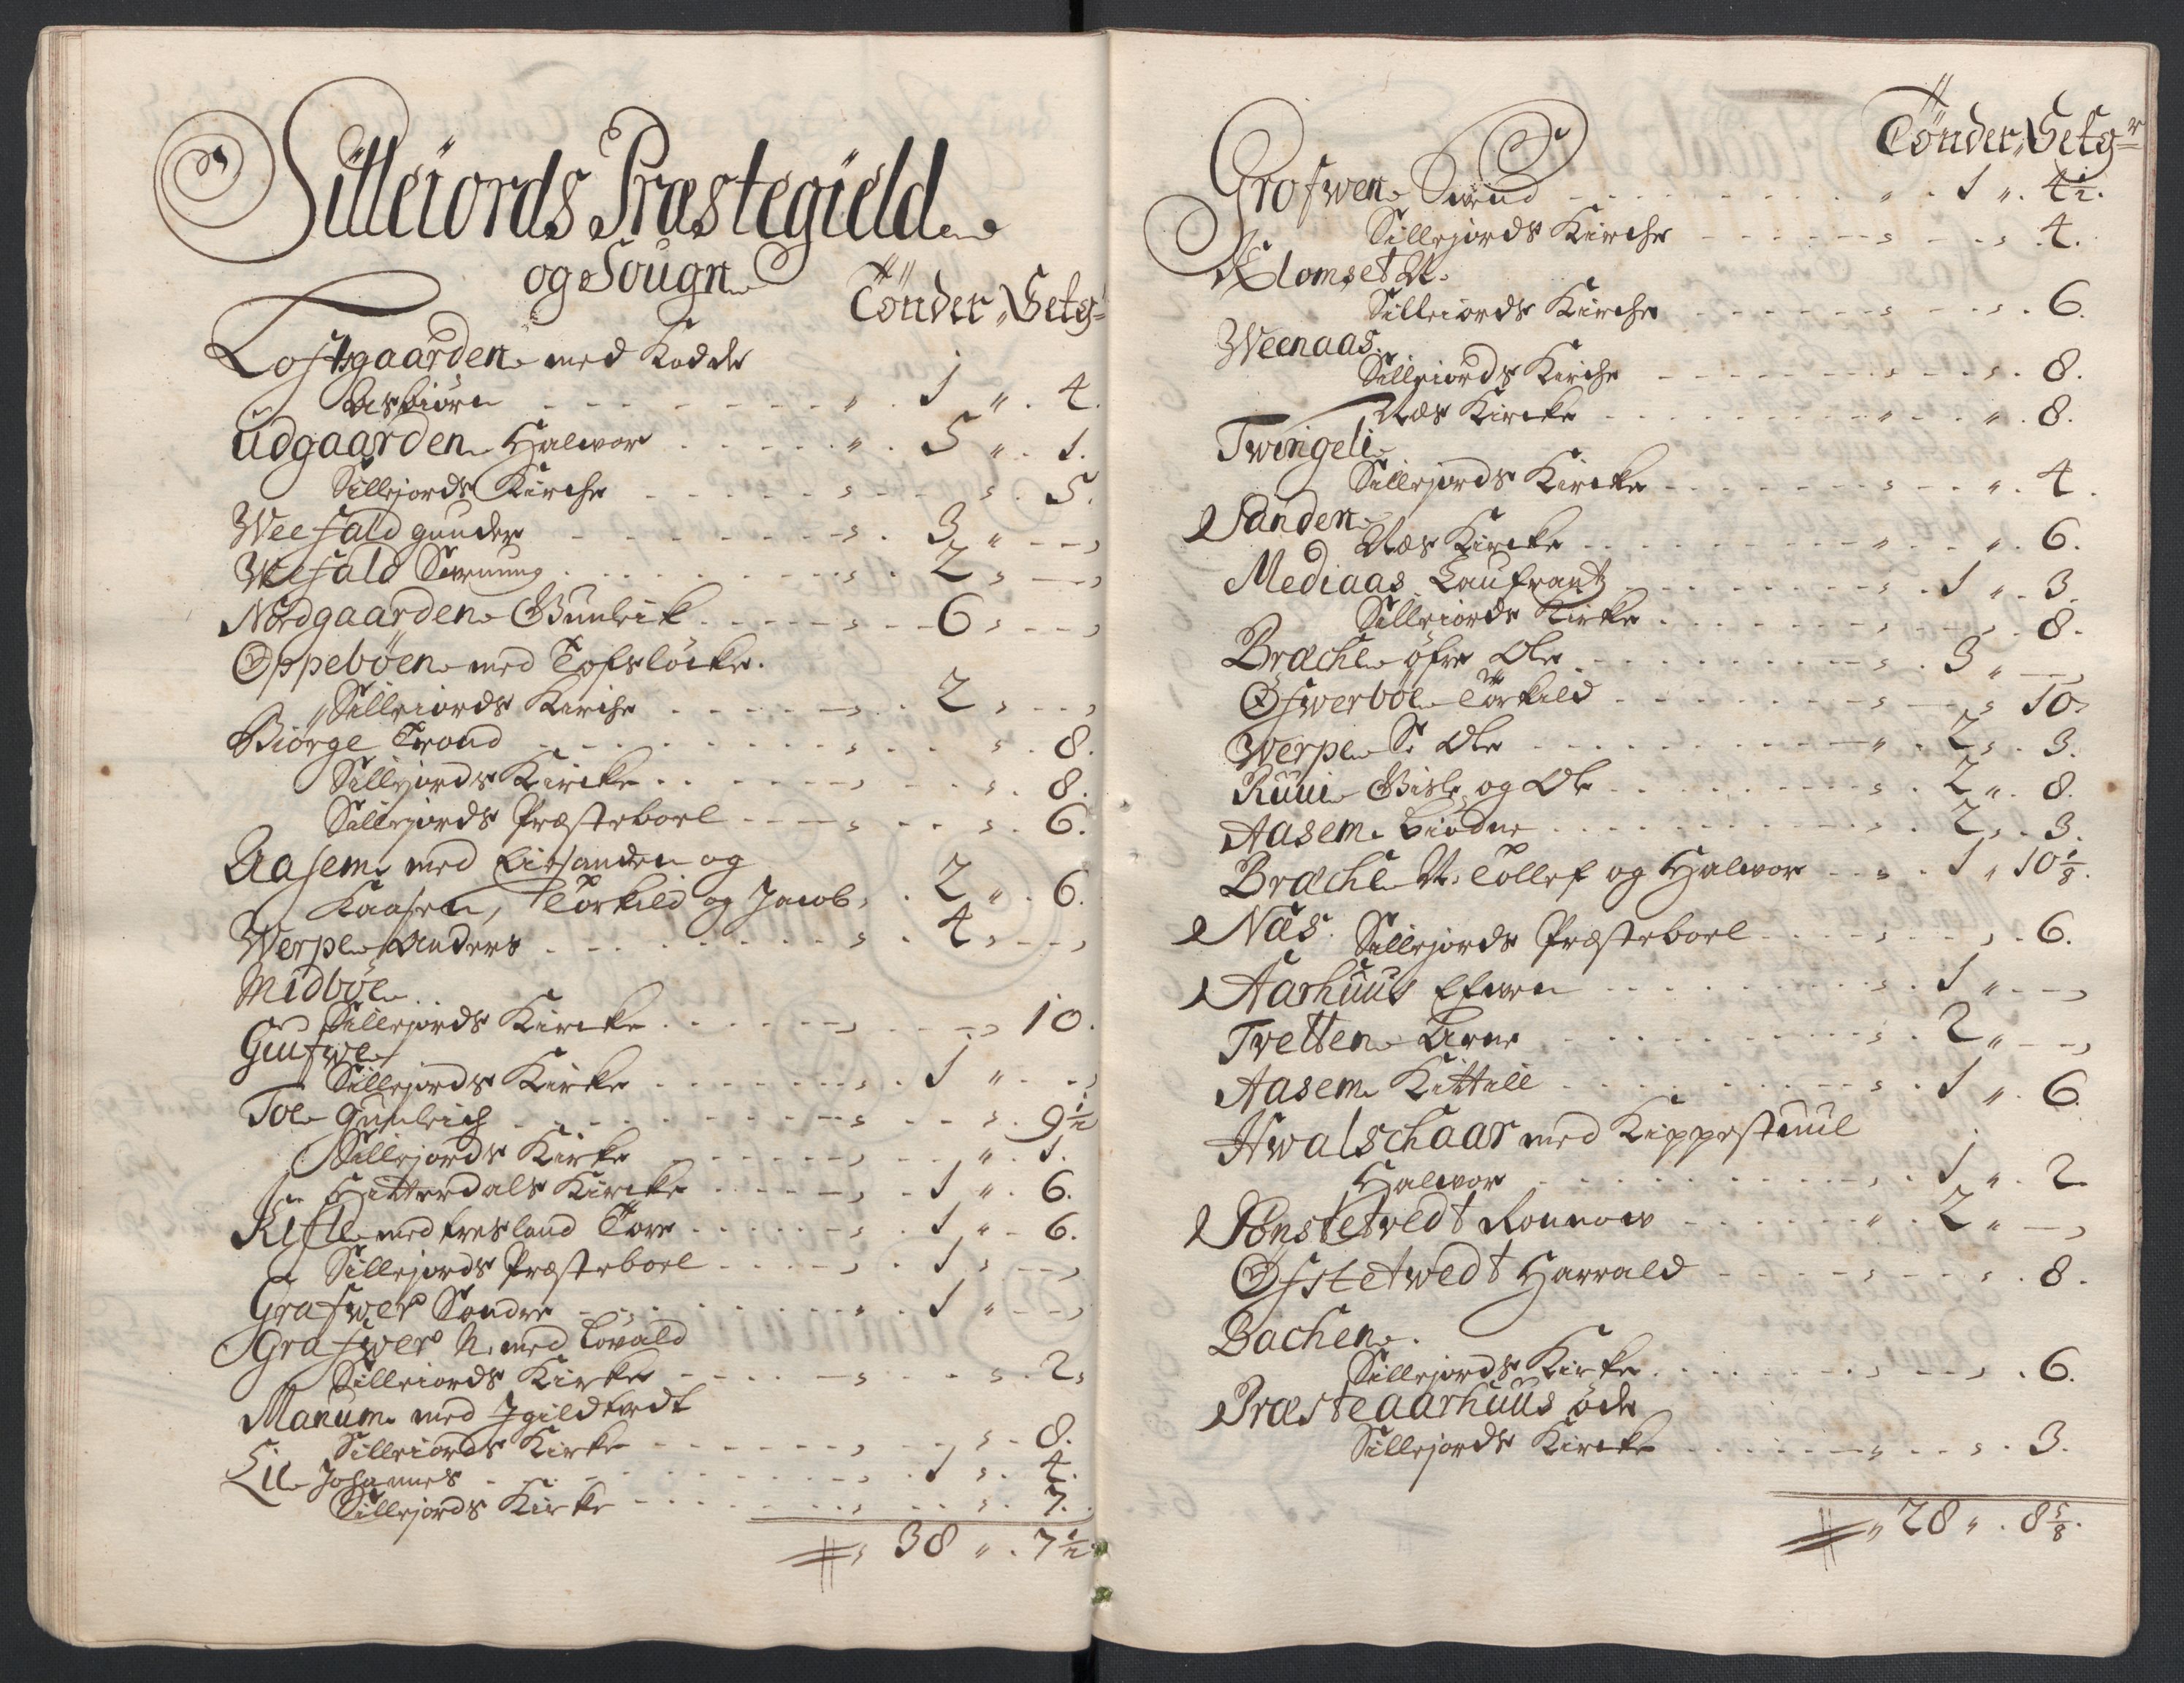 Silleiords Præstegield
og Sougn
Tönder, Setg
Loftsgaarden med Kodde
Asbiörn " 1 " 4.
Üdgaarden Halwor " 5 " 1.
Sillejords Kirche 5.
Weefald gunder 3 "
Wefald 2
Nordgaarden Gunleik 6
Oppeböen med Tofslöcke.
Silleiords Kirche 2
Biörge Trond 8.
Sillejords Kircke 8.
Sillejords Præsteboel 6.
Aasem med Lirsanden og
Kaasen, Torkild og Jacob 2 " 6.
Werpe Anders 4
Midböe
Sillejords Kircke 10.
Giufwe
Sillejords Kirke 1 "
Toe Gunleich 9½
Sillejords Kirke " 1.
Hitterdals Kircke 1 " 6.
Kifle med Fresland Tore 1 " 6.
Sillejords Præsteboel 1
Grafwer Sondre 1 "
Grafwer N. med Lovald
Silleiords Kirke 2
Manum med Igildtvedt
Silleiords Kirke 8.
Lie Johannes 1 4.
Sillejords Kirke 7.
38 " 7½
Tönder, Setgr
Grofwen Swend " 1 " 4½.
Sillejords Kirche 4.
Klomset N.
Silleiords Kirche 6.
Weenaas.
Silleiords Kirche 8.
Næs Kircke " 8.
Twingeli
Sillejords Kircke " 4.
Sanden
Næs Kircke " 6.
Mediaas Laufrantz 1 " 3.
Silleiords Kirke 8.
Bræche öfre Ole 3 "
Öfwerböe Torkild 10
Werpe S. Ole 2 3.
Ruui Gisle og Ole 2 " 8.
Aasem Biodne 2 3.
Bræche N. Tollef og Halwor 1 " 10⅛.
Næs. Sillejords Præsteboel 6.
Aarhuus Efwen 1 "
Tvetten Arne 2 "
Aasem Kittill 1 " 6
Hwalschaar med Kippestuul
Halwor 1 " 2
Sönstetvedt Rönnow " 2 "
Öfstetwedt Harrald 8.
Bachen.
Sillejords Kirke 6.
Præsteaarhuus öde
Sillejords Kircke " 3.
" 28 " 8⅝.